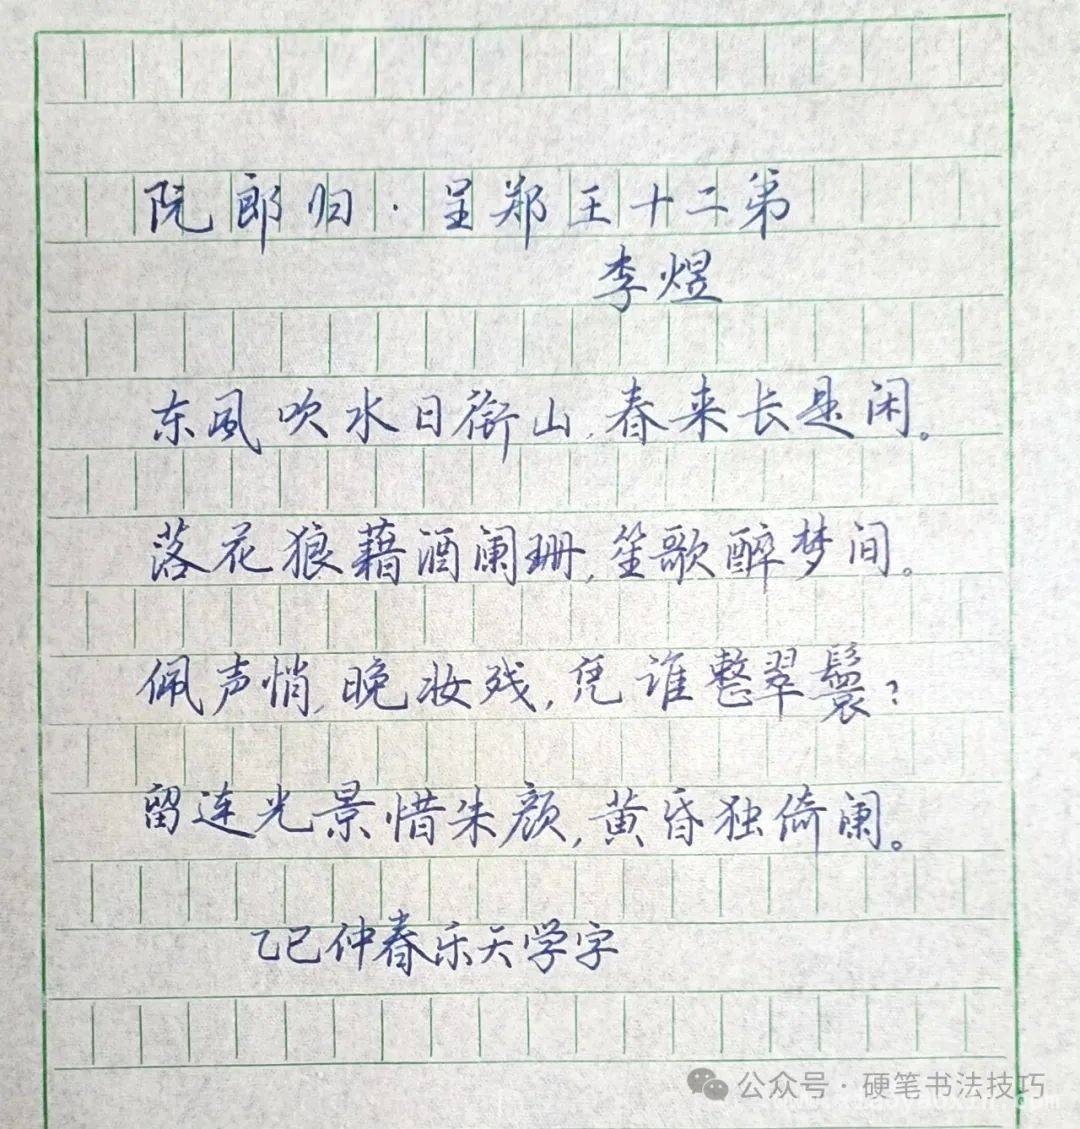 阮郎归·呈郑王十二弟
李煜
东风吹水日衔山,春来长是闲。
落花狼藉酒阑珊,笙歌醉梦间。
佩声悄,晚妆残,凭谁整翠鬟?
留连光景惜朱颜,黄昏独倚阑。
乙巳仲春乐天学字
公众号·硬笔书法技巧